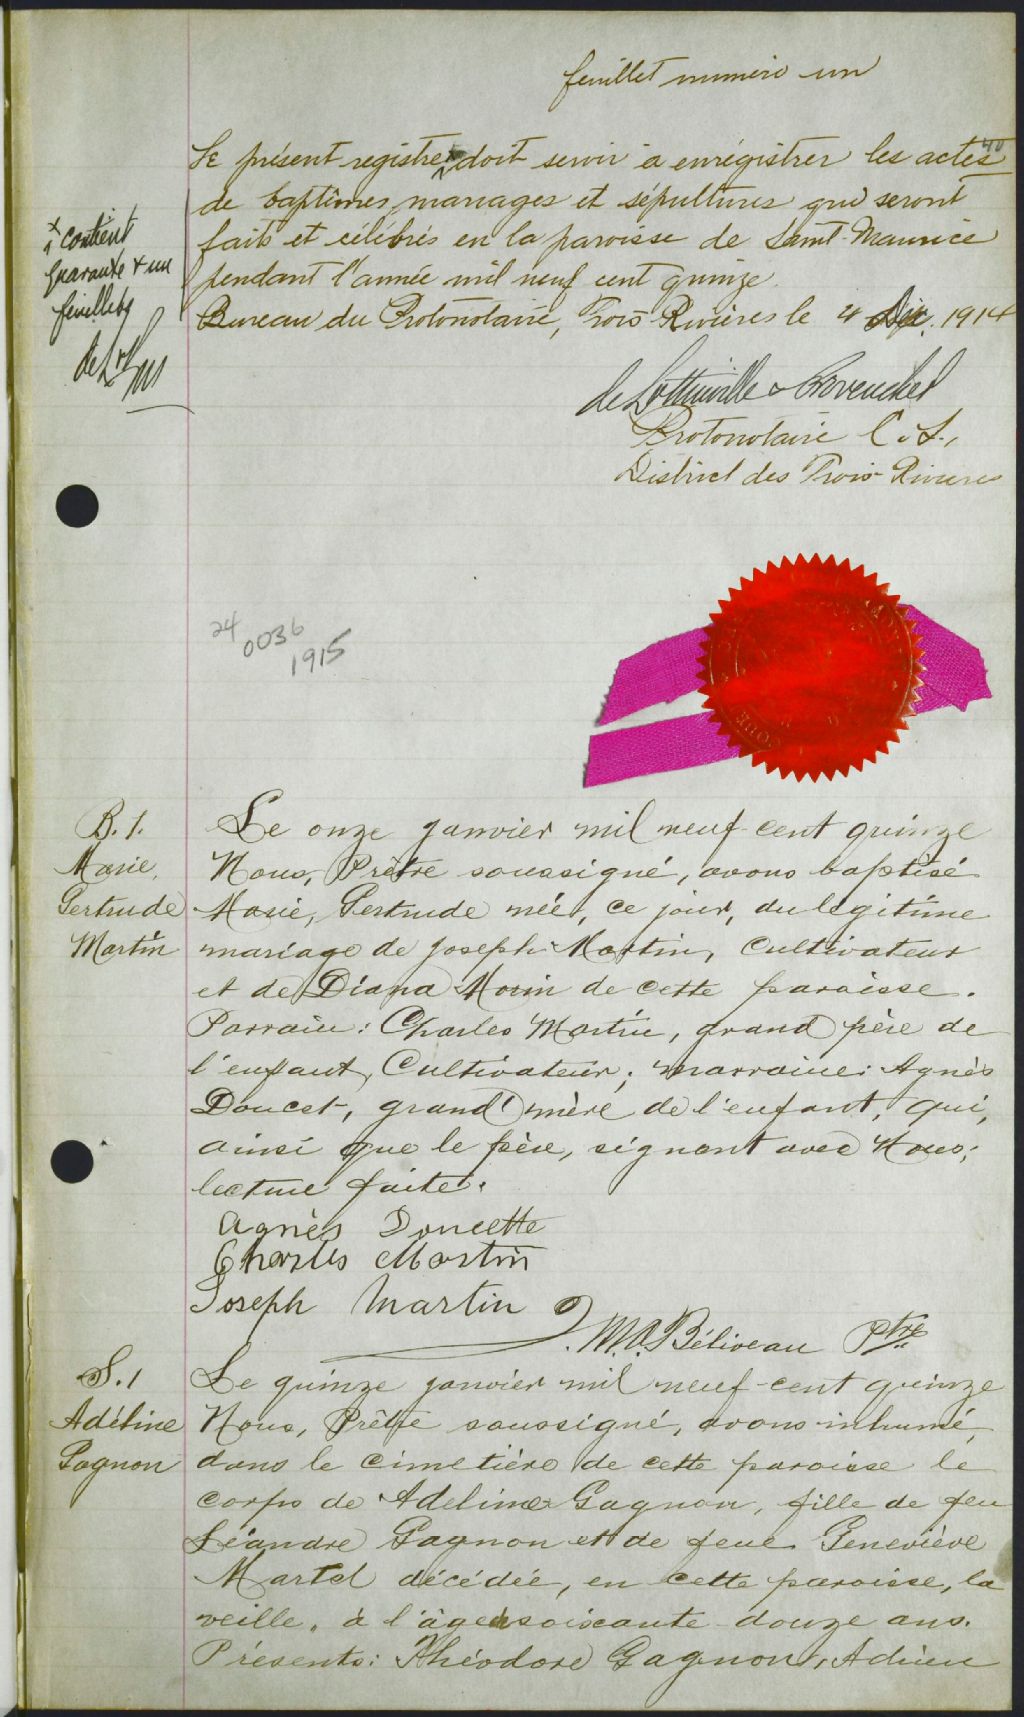 feuillet numéro un
Le présent registre x doit servir à enrégistrer les actes
de baptêmes, mariages et sépultures qui seront
faits et célébrés en la paroisse de Saint-Maurice
pendant l'année mil neuf cent quinze.
Bureau du Protonotaire, Trois-Rivières le 4 Déc. 1914
x contient
quarante & un
feuillets
de L &
de Lottinville & 
Protonotaire C.S.,
District des Trois-Rivières
24
0036
1915
B. 1.
Marie,
Gertrude
Martin
Le onze janvier mil neuf-cent quinze
Nous, Prêtre soussigné, avons baptisé
Marie, Gertrude née, ce jour, du légitime
mariage de Joseph Martin, Cultivateur
et de Diana Morin de cette paroisse.
Parrain: Charles Martin, grand père de
l'enfant, Cultivateur; marraine: Agnès
Doucet, grand'mère de l'enfant, qui,
ainsi que le père, signent avec Nous;
lecture faite.
Agnès Doucette
Charles Martin
Joseph Martin
M.A. Béliveau Ptre
S. 1
Adéline
Gagnon
Le quinze janvier mil neuf-cent quinze
Nous, Prêtre soussigné, avons inhumé,
dans le cimetière de cette paroisse le
corps de Adeline Gagnon, fille de feu
Léandre Gagnon et de feue Geneviève
Martel décédée, en cette paroisse, la
veille, à l'âge de soixante douze ans.
Présents: Théodore Gagnon, Adrien